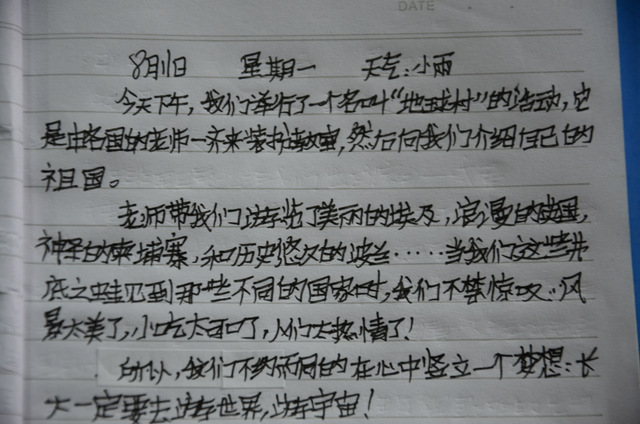 DATE
8月1日 星期一 天气:小雨
今天下午,我们举行了一个名叫“地球村”的活动,它
是由各国的老师一齐来装扮教室,然后向我们介绍自己的
祖国。
老师带我们游览了美丽的埃及,浪漫的法国,
神圣的柬埔寨,和历史悠久的波兰……当我们这些井
底之蛙见到那些不同的国家时,我们不禁惊叹:风
景太美了,小吃太可口了,人们太热情了!
所以,我们不约而同的在心中竖立一个梦想:长
大一定要去游世界,游宇宙!